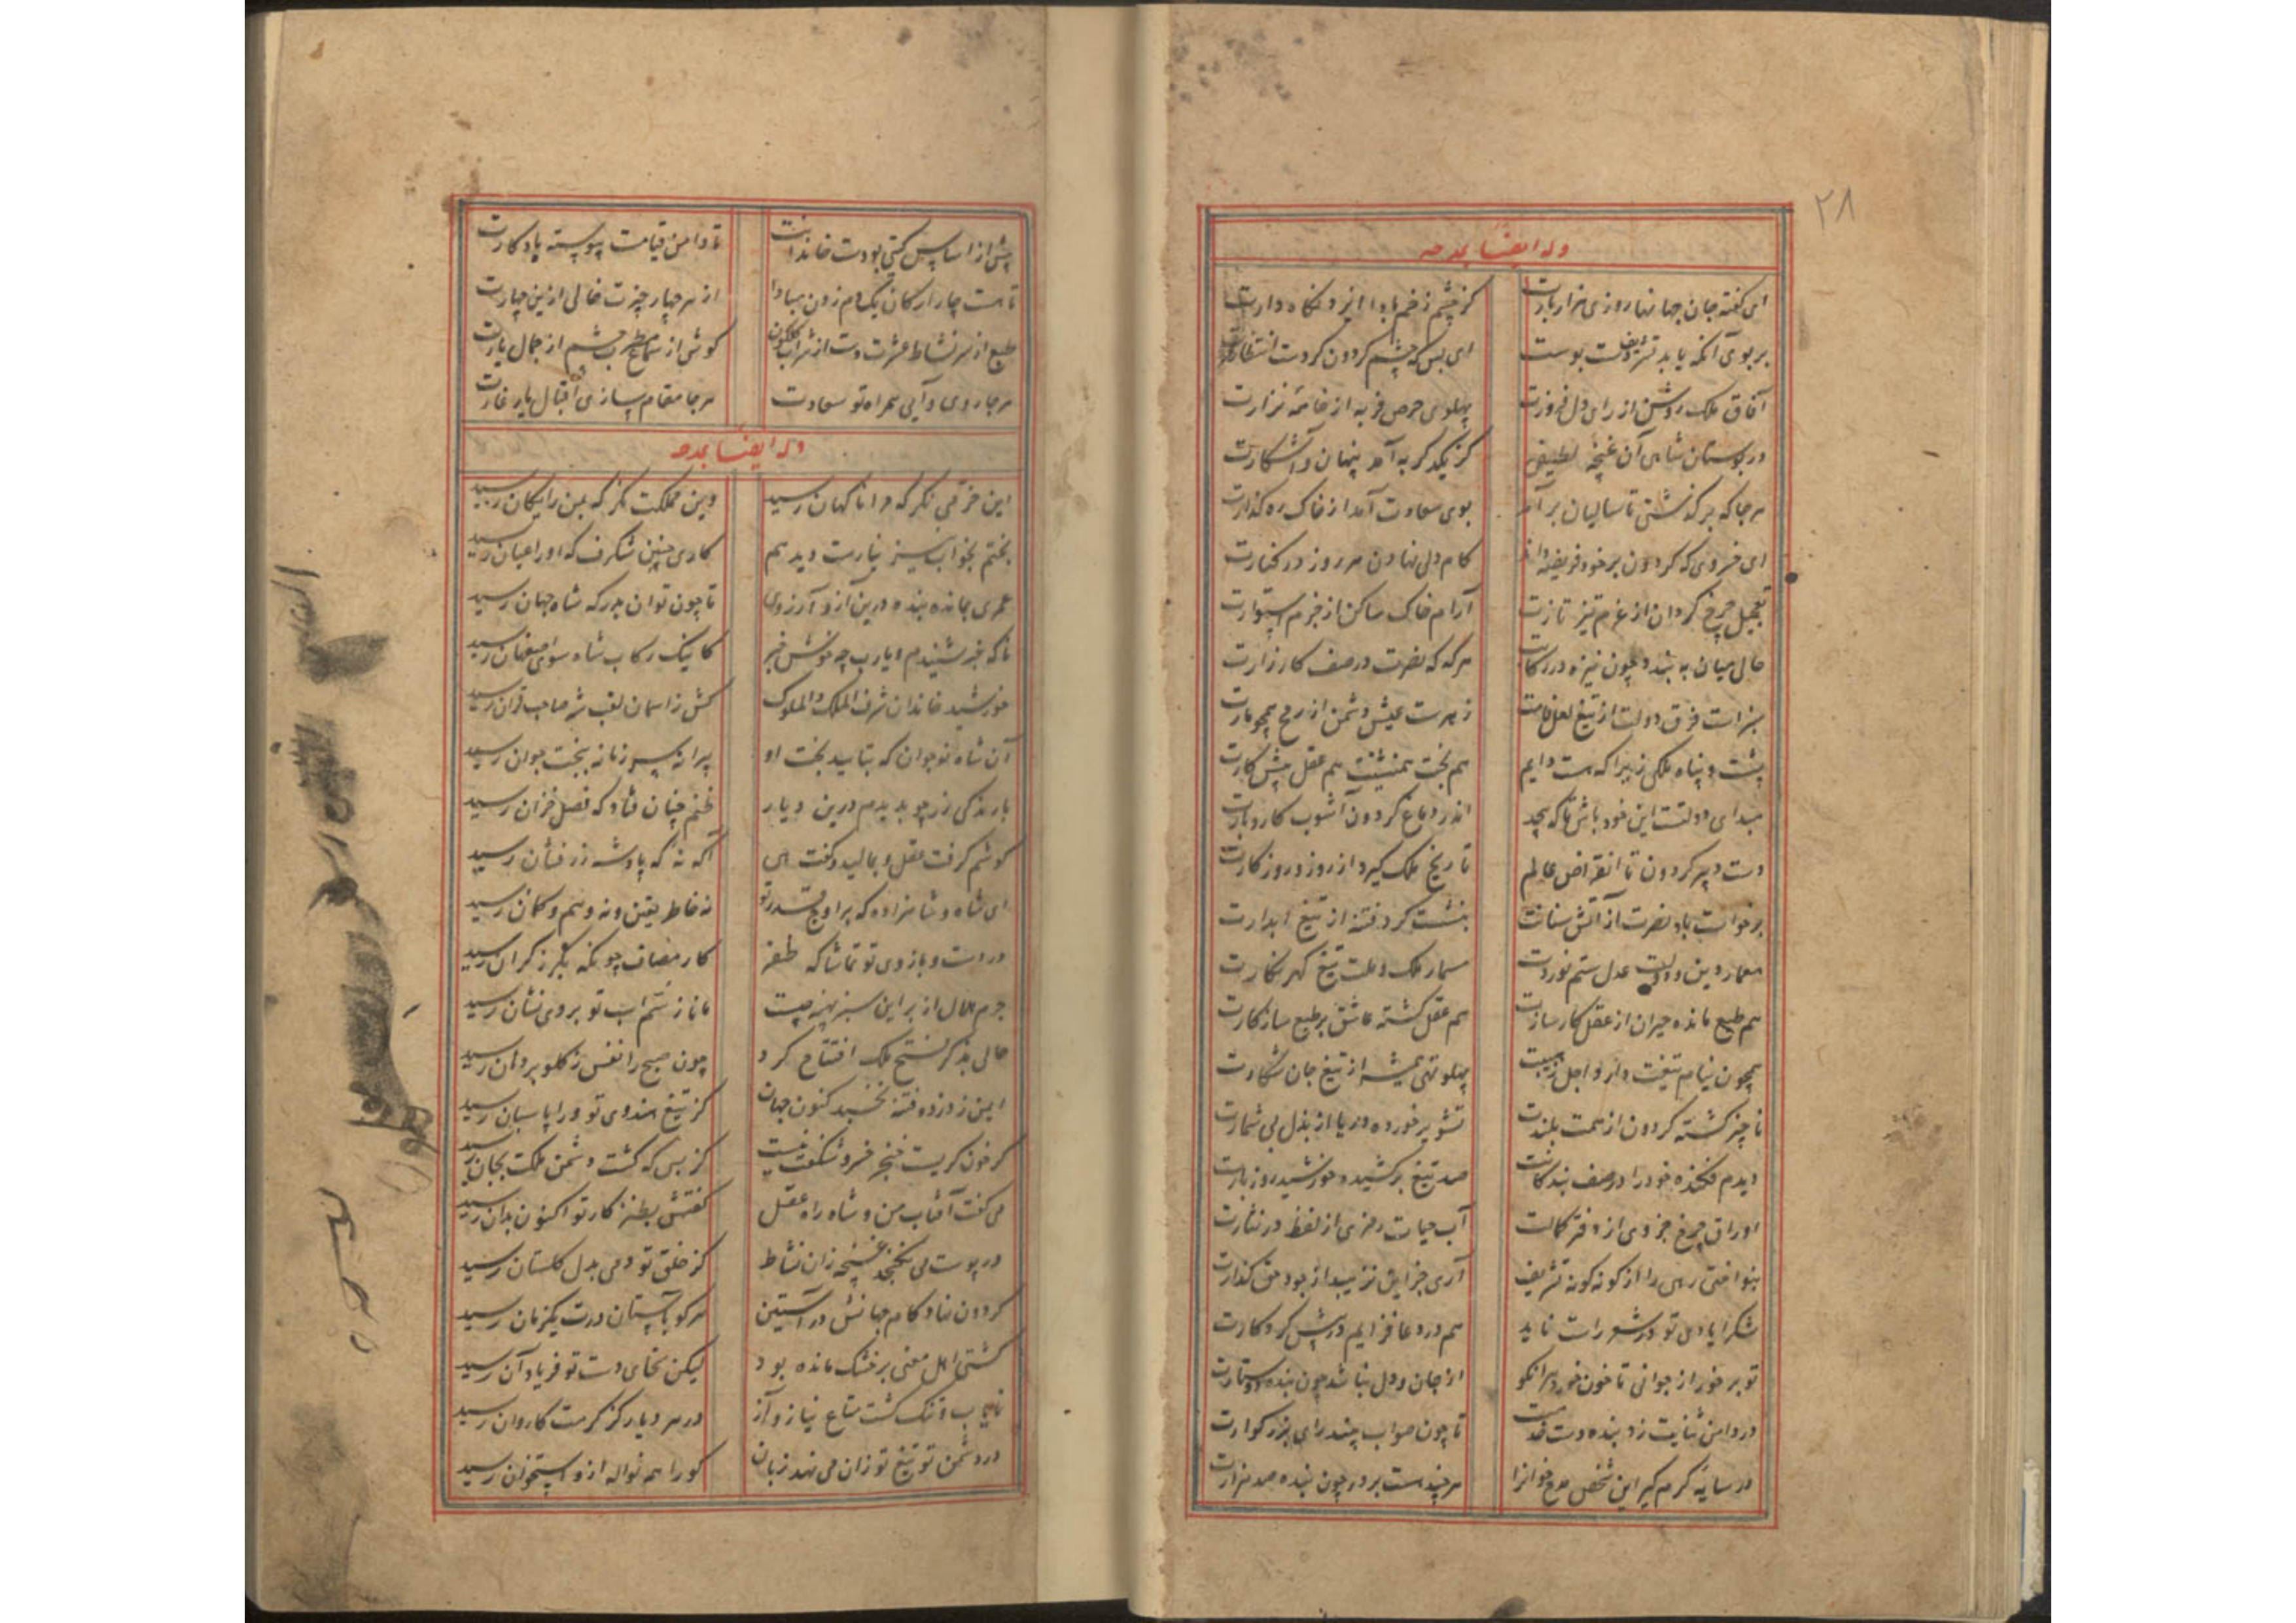 ۲۸
وله ایضاً بمدحه
ای گفته جان جهانها روزی هزار بارت کز چشم زخم بادا ایزد نگاه دارت
بر بوی آنکه یابد بوست ای بس که چشم گردون کردست انتظارت
آفاق ملک روشن از رای دل فروزت پهلوی حرص فربه از خامهٔ نزارت
در بوستان شاهی آن غنچه لطیفی کز یکدگر به آمد پنهان و آشکارت
هرجا که بر گذشتی تا سالیان برآمد بوی سعادت آمد از خاک ره گذارت
ای خسروی که گردون بر خود فریضه داند کام دلی نهادن هر روز در کنارت
تعجیل چرخ گردان از عزم تیز تازت آرام خاک ساکن از حزم استوارت
حالی میان به بندد چون نیزه در رکابت هرکه که نصرت در صف کارزارت
سبزست فرق دولت از تیغ لعل فامت زهرست عیش دشمن از رمح همچو مارت
پشت و پناه ملکی زیرا که هست دایم هم بخت همنشینت هم عقل پیش کارت
مبدای دولتست این خود باش تا که پیچد اندر دماغ گردون آشوب کار و بارت
دست دبیر گردون تا انقراض عالم تاریخ ملک گیرد از روز و روزگارت
برخواست باد نصرت از آتش سنانت بنشست گرد فتنه از تیغ ابدارت
معمار دین و دولت عدل ستم نوردت مسمار ملک و ملت تیغ گهر نگارت
هم طبع مانده حیران از عقل کارسازت هم عقل گشته عاشق بر طبع سازکارت
همچون نیام تیغت دارد اجل ز هیبت پهلو تهی همیشه از تیغ جان شکارت
ناچیز گشته گردون از همت بلندت تشویر خورده دریا از بذل بی شمارت
دیدم فکنده خود را در صف بندگانت صد تیغ برکشیده خورشید روز بارت
اوراق چرخ جزوی از دفتر کمالت آب حیات رمزی از لفظ در نثارت
بنواختی رهی را از گونه گونه تشریف آری جز این نزیبد از جود حق گذارت
شکر ایادی تو در شعر راست ناید هم در دعا فزایم در پیش کردگارت
تو بر خور از جوانی تا خون خورد هرانکو از جان و دل نباشد چون بنده دوستارت
در دامن ثنایت زد بنده دست تا چون صواب بیند رای بزرگوارت
در سایهٔ کرم گیر این شخص مدح خوانرا هرچند هست بر در چون بنده صد هزارت
پیش از اساس گیتی بودست خاندانت تا دامن قیامت پیوسته یادگارت
تا هست چار ارکان یک دم زدن مبادا از هر چهار چیزت خالی ازین چهارت
طبع از سر نشاط عشرت دست از شراب گلگون گوش از سماع مطرب چشم از جمال یارت
هرجا روی و آیی همراه تو سعادت هرجا مقام سازی اقبال یار غارت
وله ایضاً بمدحه
این خرمی نگر که مرا ناگهان رسید وین مملکت نگر که بمن رایگان رسید
بختم بخواب نیز نیارست دید هم کاری چنین شگرف که او را عیان رسید
عمری بمانده بنده درین آز و آرزوی تا چون توان بدرگه شاه جهان رسید
ناگه خبر شنیدم و یارب چه خوش خبر کاینک رکاب شاه سوی اصفهان رسید
خورشید خاندان شرف الملک والملوک کش ز اسمان لقب شه صاحب قران رسید
آن شاه نوجوان که بتایید بخت او پیرانه سر زمانه ببخت جوان رسید
بارندگی زر چو بدیدم درین دیار ظنم چنان فتاد که فصل خزان رسید
گوشم گرفت عقل و بمالید و گفت هی آگه نهٔ که پادشه زر فشان رسید
ای شاه و شاهزاده که بر اوج قدر تو نه خاطر یقین و نه وهم و گمان رسید
در دست و بازوی تو تماشاگه ظفر کار مصاف چونکه بگرز گران رسید
جرم هلال از بر این سبز پهنه چیست مانا ز سم اسب تو بروی نشان رسید
حالی بذکر فتح ملک افتتاح کرد چون صبح را نفس ز گلو بر دهان رسید
ایمن ز دزد فتنه بخسبد کنون جهان کز تیغ هندوی تو ورا پاسبان رسید
گر خون گریست خنجر خسرو شگفت نیست کز بس که گشت دشمن ملکت بجان رسید
می گفت آفتاب من و شاه راه عقل گفتش بطنز کار تو اکنون بدان رسید
در پوست می نگنجد غنچه زان نشاط کز خلق تو دمی بدل گلستان رسید
گردون نهاد کام جهانش در آستین هرکو بآستان درت یکزمان رسید
کشتی اهل معنی بر خشک مانده بود لیکن سخای دست تو فریاد آن رسید
نایاب و تنگ گشت متاع نیاز و آز در هر دیار کز کرمت کاروان رسید
در دشمن تو تیغ تو زان می نهد زبان کو را همه نواله ازو استخوان رسید